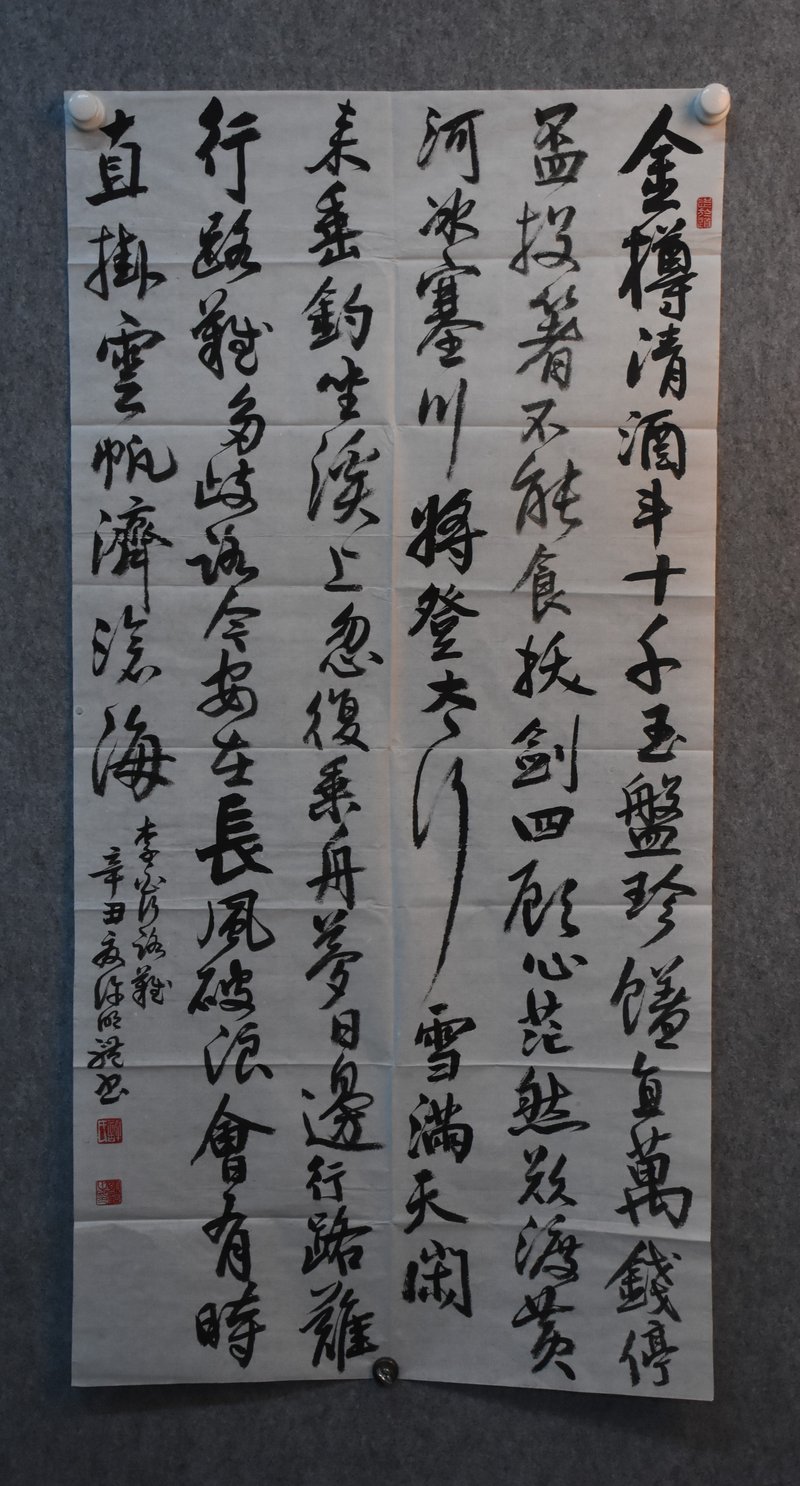 金樽清酒斗十千玉盤珍饈直萬錢停
盃投箸不能食拔劍四顧心茫然欲渡黃
河冰塞川將登太行雪滿天閑
来垂釣坐溪上忽復乘舟夢日邊行路難
行路難多歧路今安在長風破浪會有時
直掛雲帆濟滄海
李白行路難
辛丑夏徐明禮书